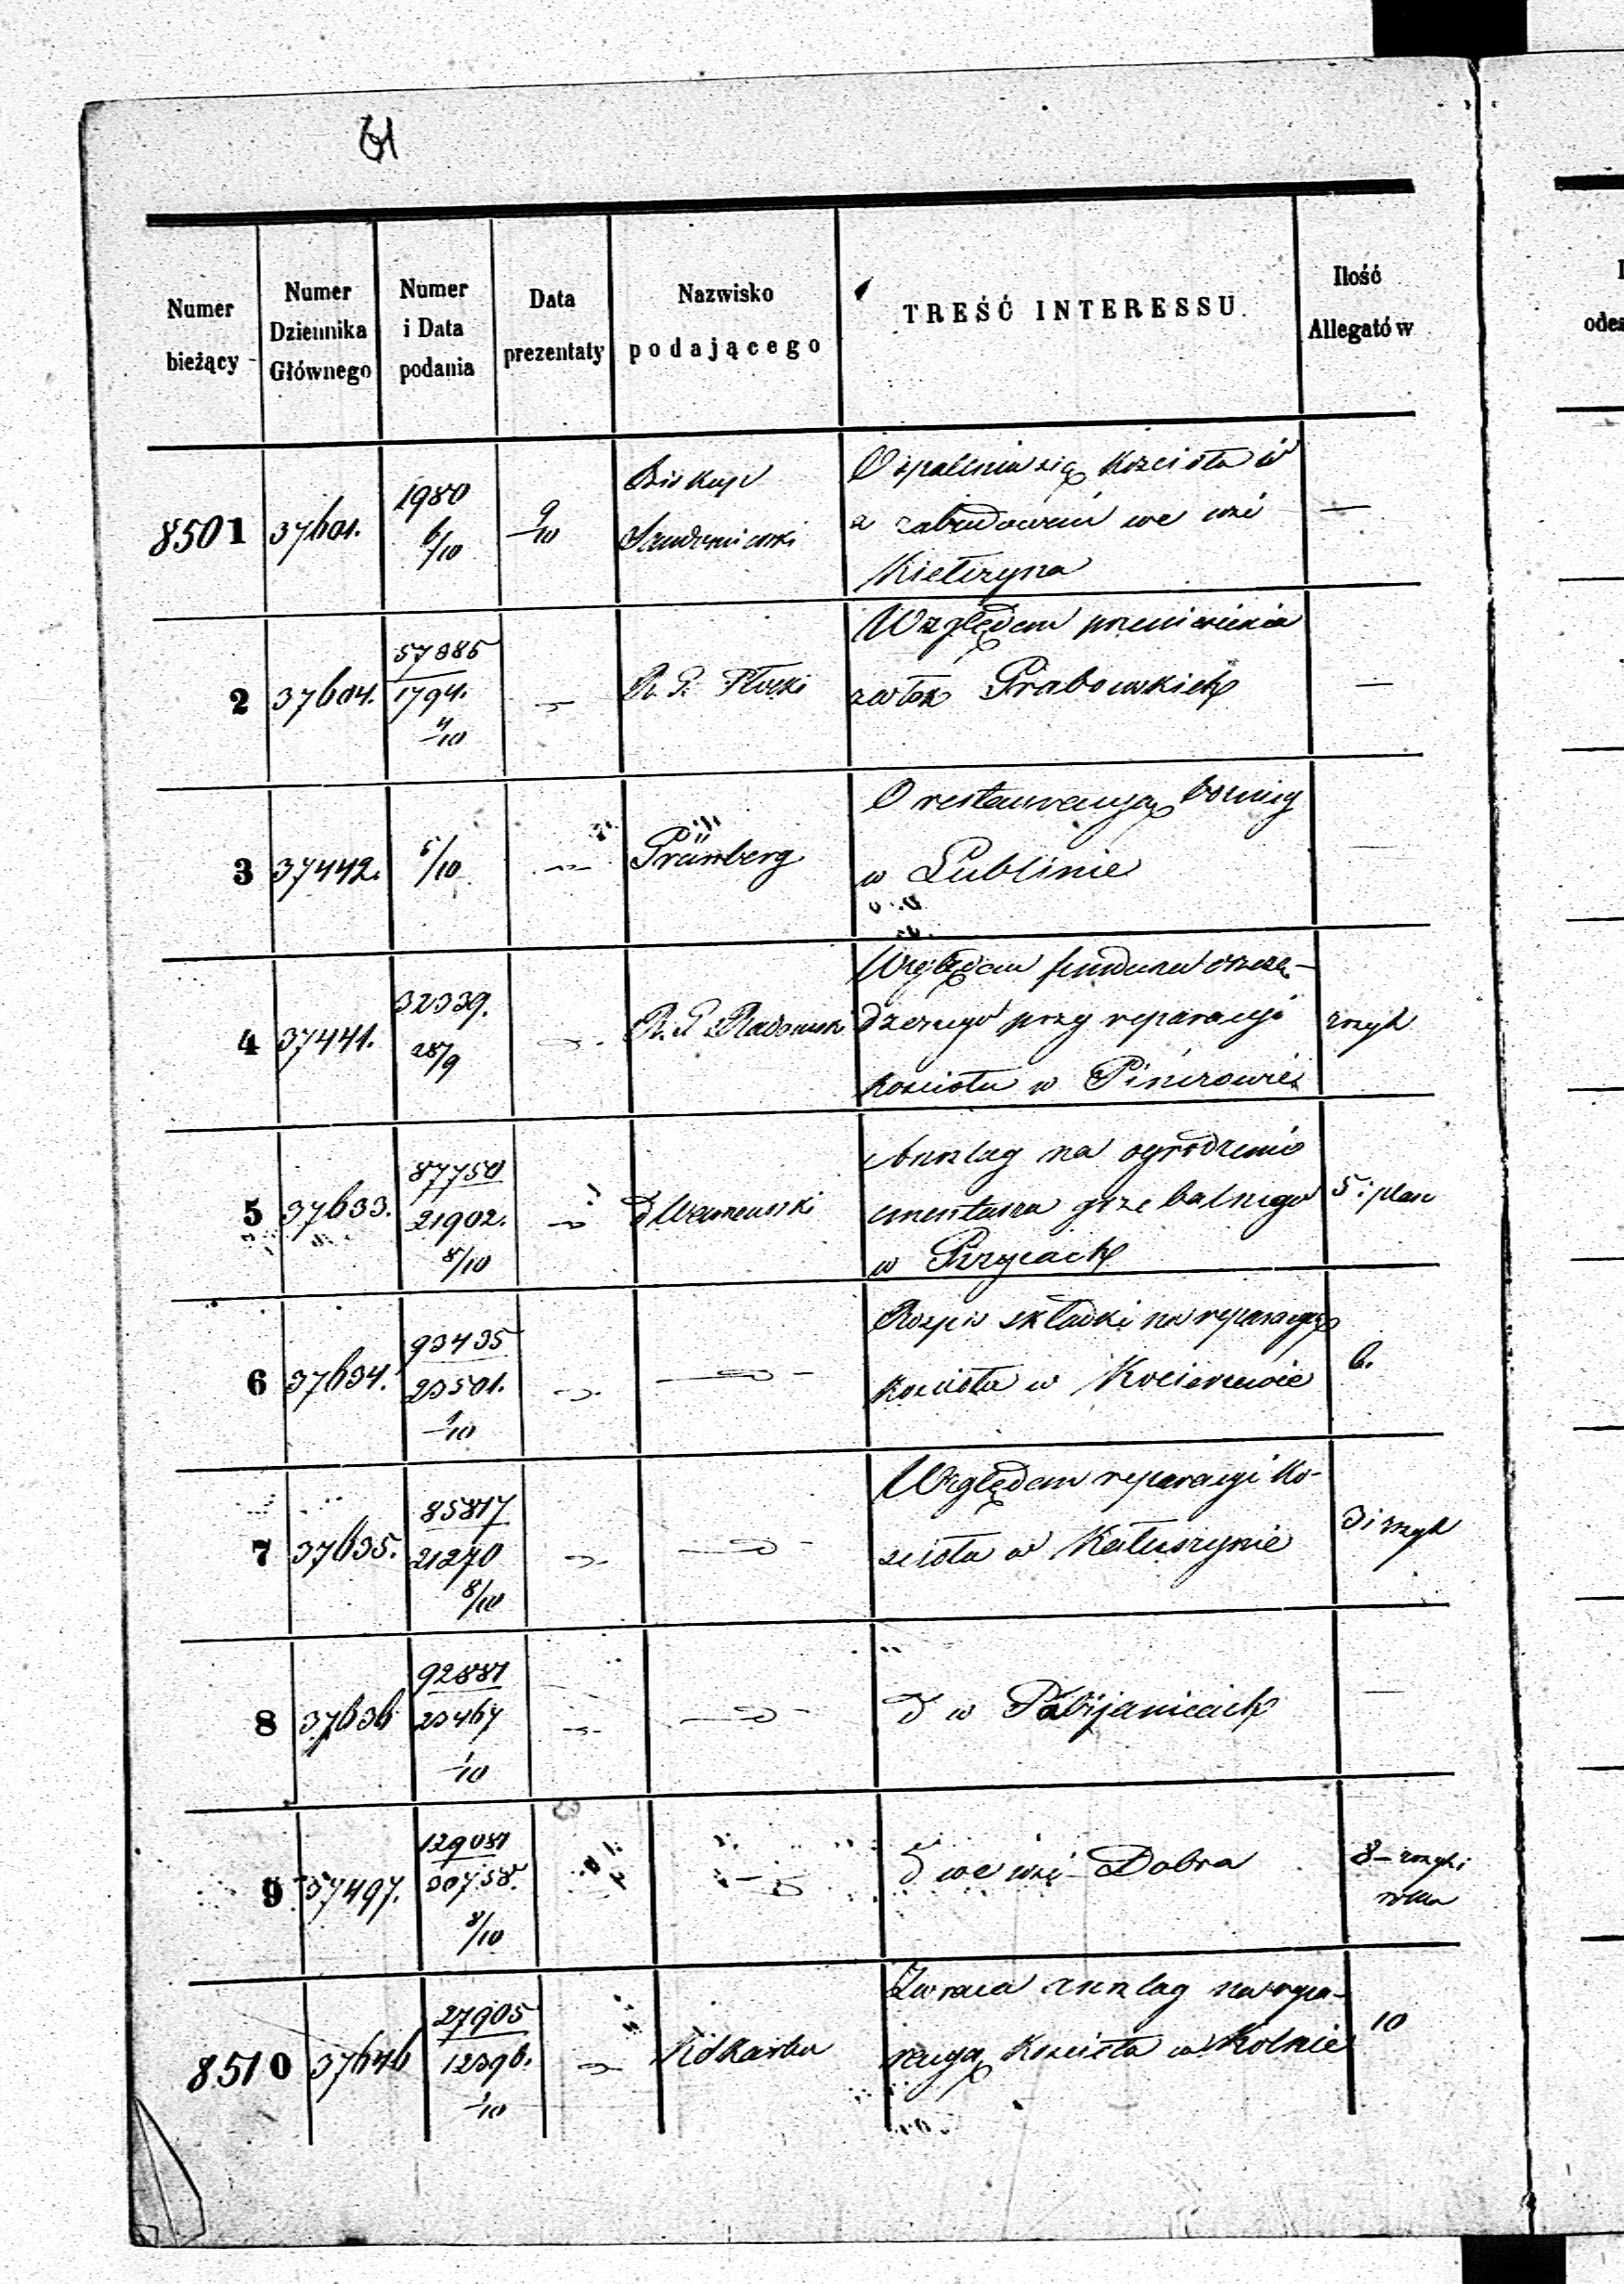 61
Numer bieżący
Numer Dziennika Głównego
Numer i Data podania
Data prezentaty
Nazwisko podającego
TREŚĆ INTERESSU
Ilość Allegatów
8501 37601. 1980 6/10 9/10 Biskup Sandomierski
O spaleniu się Kościoła
z zabudowań we wsi
Kiełczyna
—
2 37604. 57885 1794. 4/10 R. G. Płocki
Względem przeniesienia
zwłok Grabowskich
—
3 37442. 5/10 Grünberg
O restauracyą bóźnicy
w Lublinie
4 37441. 32339. 28/9 R. G. Radomski
Względem funduszu
przy reparacyi
kościoła w
anzyh
5 37633. 87750 21902. 8/10 d Warszawski
Anszlag na ogrodzenie
cmentarza grzebalnego
w
5 i plan
6 37634. 93435 23501. 1/10
Rozpis składki na reparacyę
kościoła w
6.
7 37635. 85817 21270 8/10
Względem reparacyi Ko-
ścioła w Kałuszynie
3 i anszl
8 37636 92881 23467 1/10
d w Pabijanicach
9 37497. 129081 30758. 8/10
d we wsi Dobra
8 –
8510 37646 27905 12396. 1/10
Zwraca anszlag na repa-
racyą Kościoła w Kolnie
10